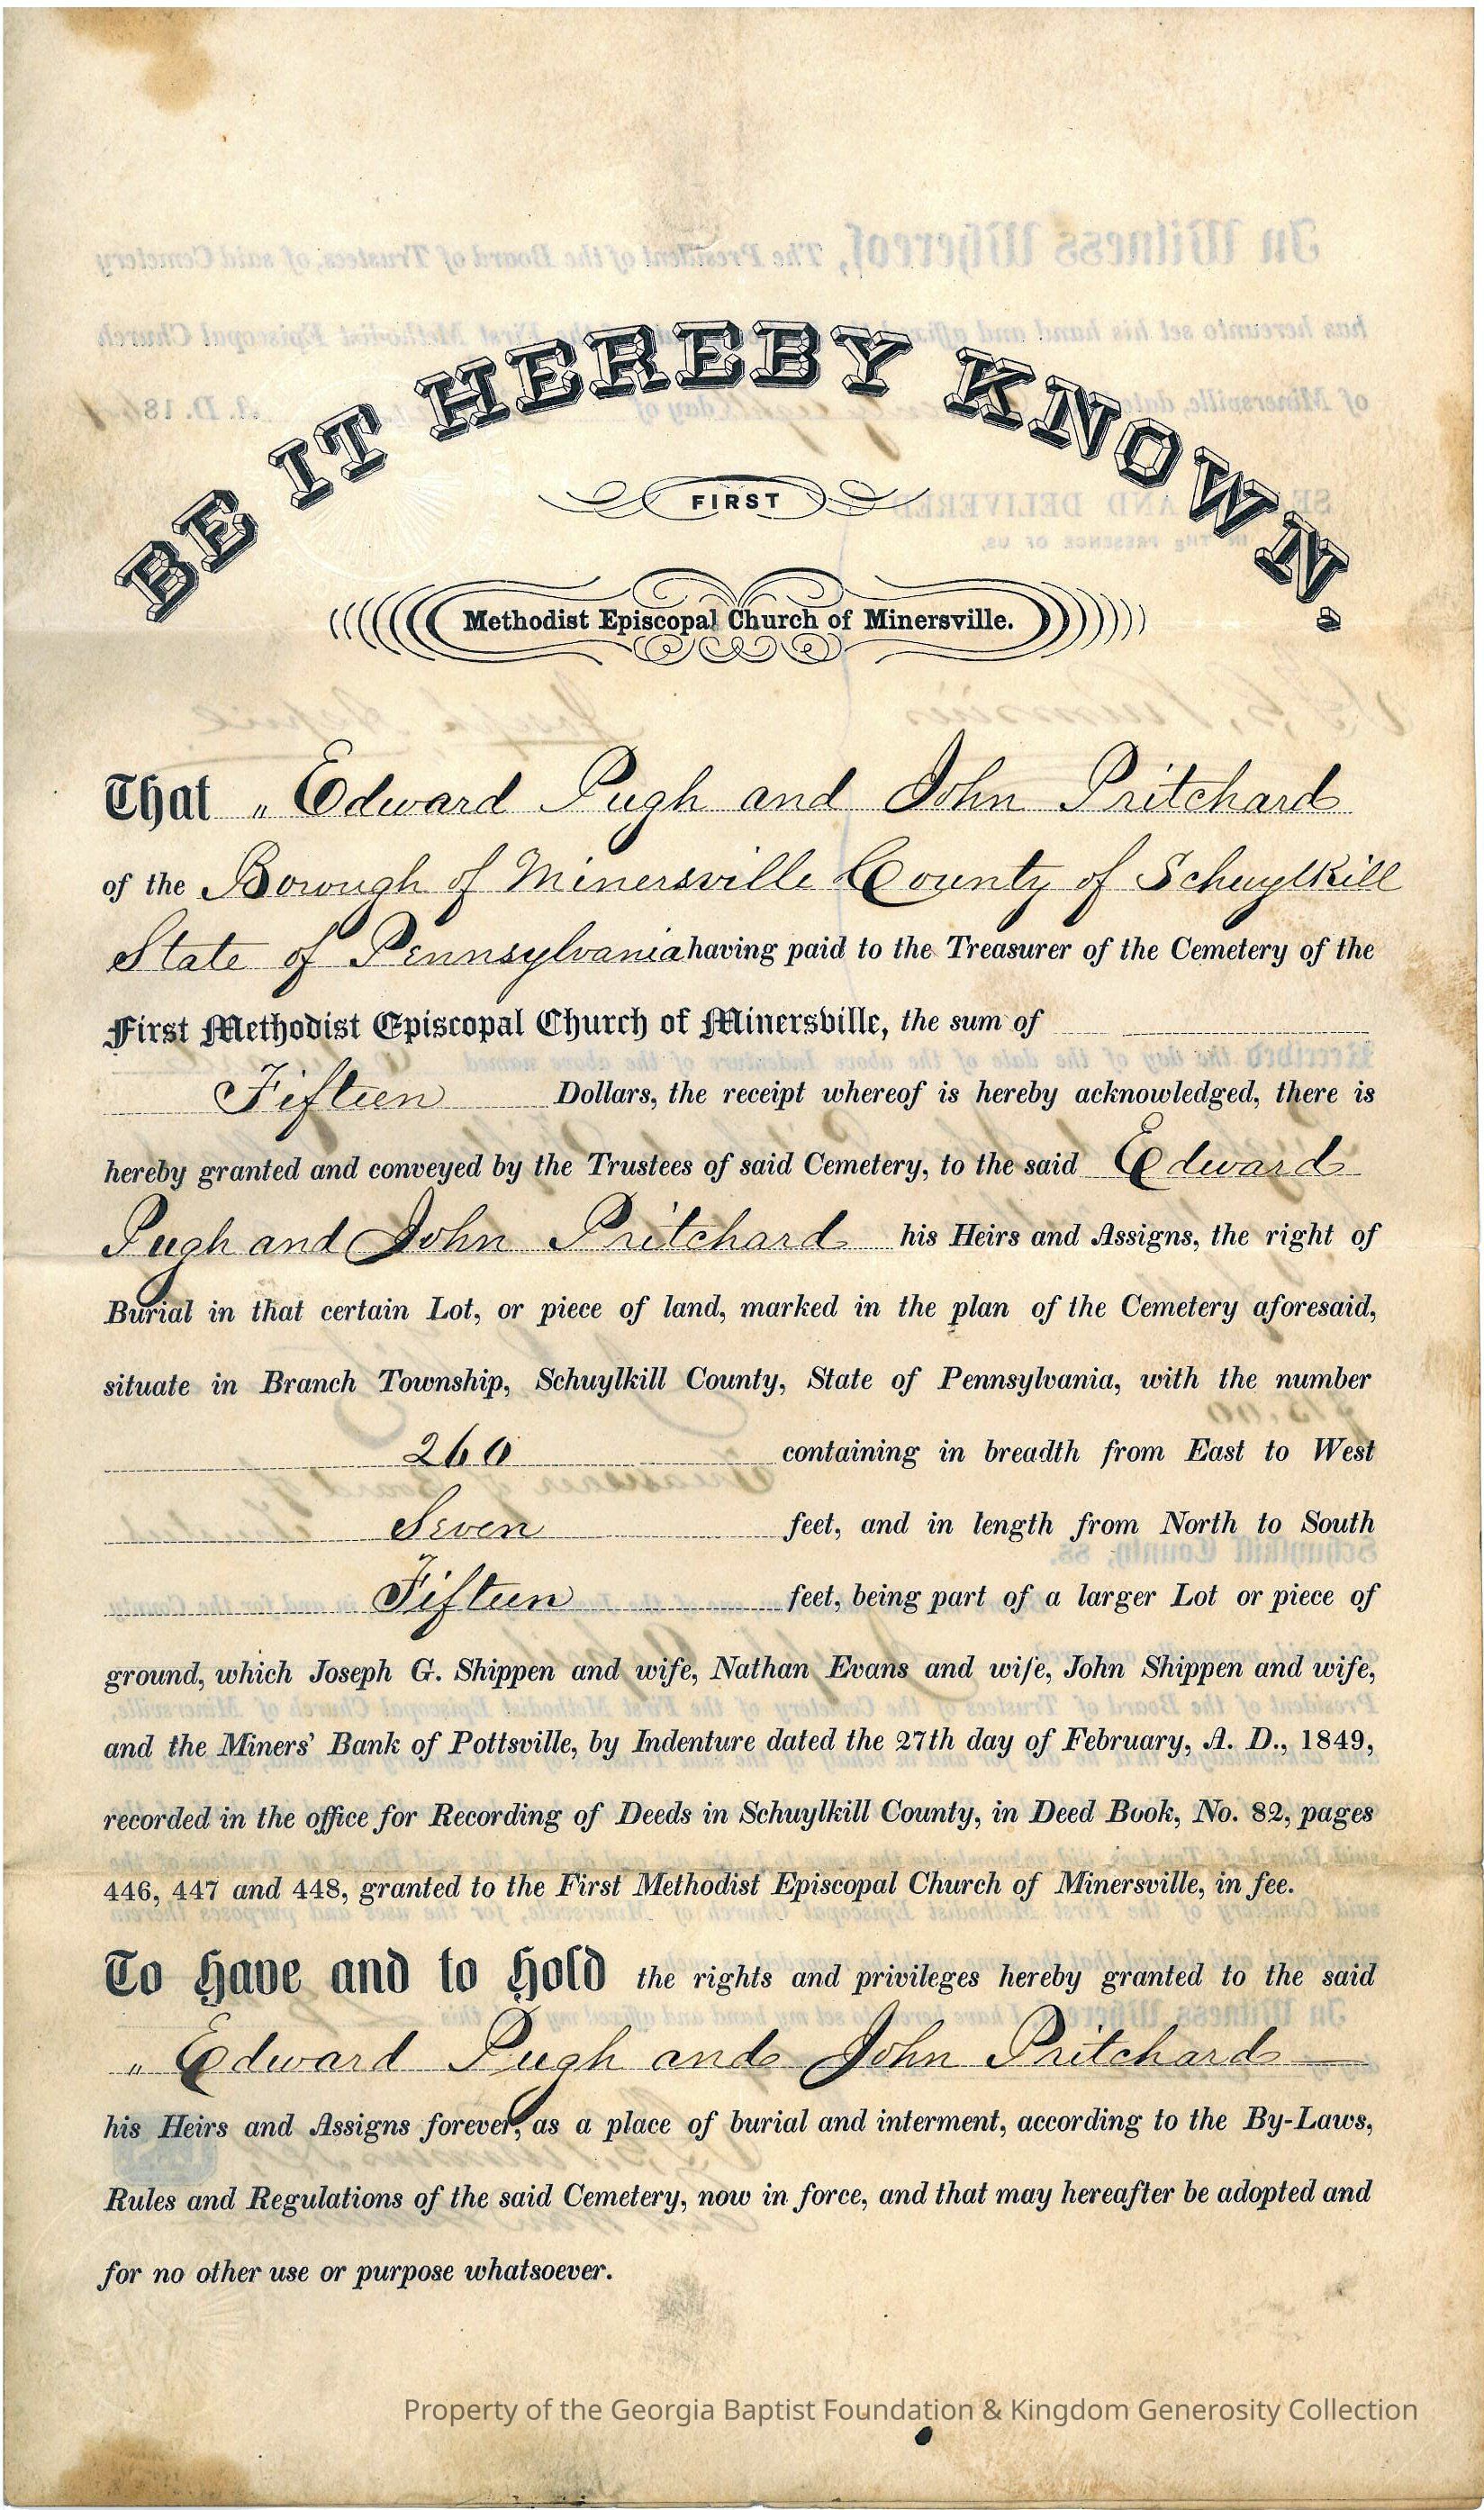 BE IT HEREBY KNOWN,
FIRST
Methodist Episcopal Church of Minersville.
That „ Edward Pugh and John Pritchard
of the Borough of Minersville County of Schuylkill
State of Pennsylvania having paid to the Treasurer of the Cemetery of the
First Methodist Episcopal Church of Minersville, the sum of
Fifteen Dollars, the receipt whereof is hereby acknowledged, there is
hereby granted and conveyed by the Trustees of said Cemetery, to the said Edward
Pugh and John Pritchard his Heirs and Assigns, the right of
Burial in that certain Lot, or piece of land, marked in the plan of the Cemetery aforesaid,
situate in Branch Township, Schuylkill County, State of Pennsylvania, with the number
260 containing in breadth from East to West
Seven feet, and in length from North to South
Fifteen feet, being part of a larger Lot or piece of
ground, which Joseph G. Shippen and wife, Nathan Evans and wife, John Shippen and wife,
and the Miners' Bank of Pottsville, by Indenture dated the 27th day of February, A. D., 1849,
recorded in the office for Recording of Deeds in Schuylkill County, in Deed Book, No. 82, pages
446, 447 and 448, granted to the First Methodist Episcopal Church of Minersville, in fee.
To Have and to Hold the rights and privileges hereby granted to the said
„ Edward Pugh and John Pritchard
his Heirs and Assigns forever, as a place of burial and interment, according to the By-Laws,
Rules and Regulations of the said Cemetery, now in force, and that may hereafter be adopted and
for no other use or purpose whatsoever.
Property of the Georgia Baptist Foundation & Kingdom Generosity Collection